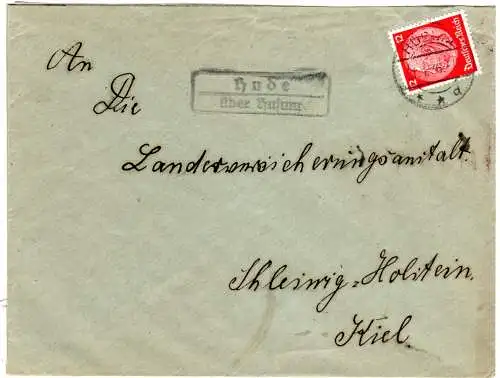 An
Die
Hude
über Husum
HUSUM
d
12 12
Deutsches Reich
Landesversicherungsanstalt
Schleswig-Holstein.
Kiel.